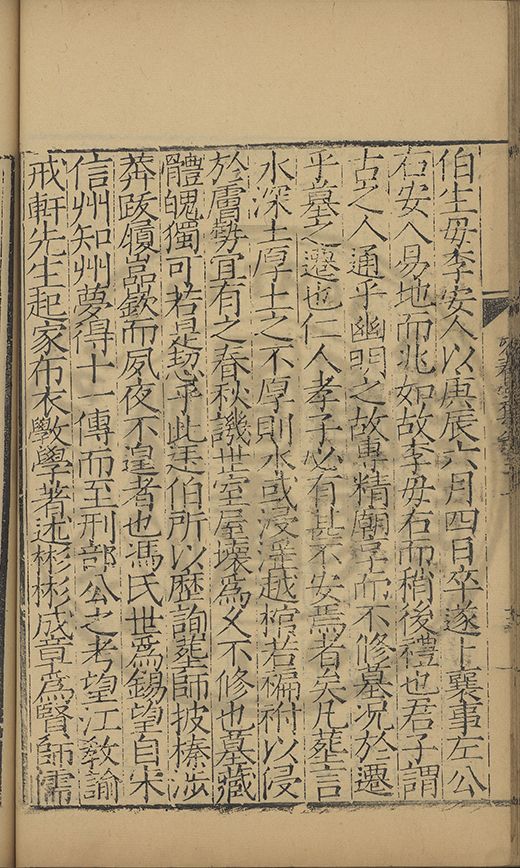 伯生毋李安人以庚辰六月四日卒遂卜襄事左公
右安人易地而兆如故李毋右而稍後禮也君子謂
古之人通乎幽明之故專精廟享而不修墓况於遷
乎墓之遷也仁人孝子必有甚不安焉者矣凡塟言
水深土厚土之不厚則水或浸淫越棺若褊祔以侵
於膚勢冝有之春秋譏世室屋壞爲乆不修也墓藏
體魄獨可若是恝乎此廷伯所以歷詢塟師披榛涉
莽䟦嶺嵓歘而夙夜不遑者也馮氏世爲錫望自宋
信州知州夢得十一傳而至刑部公之考望江敎諭
戒軒先生起家布衣斆學著述彬彬成章爲賢師儒